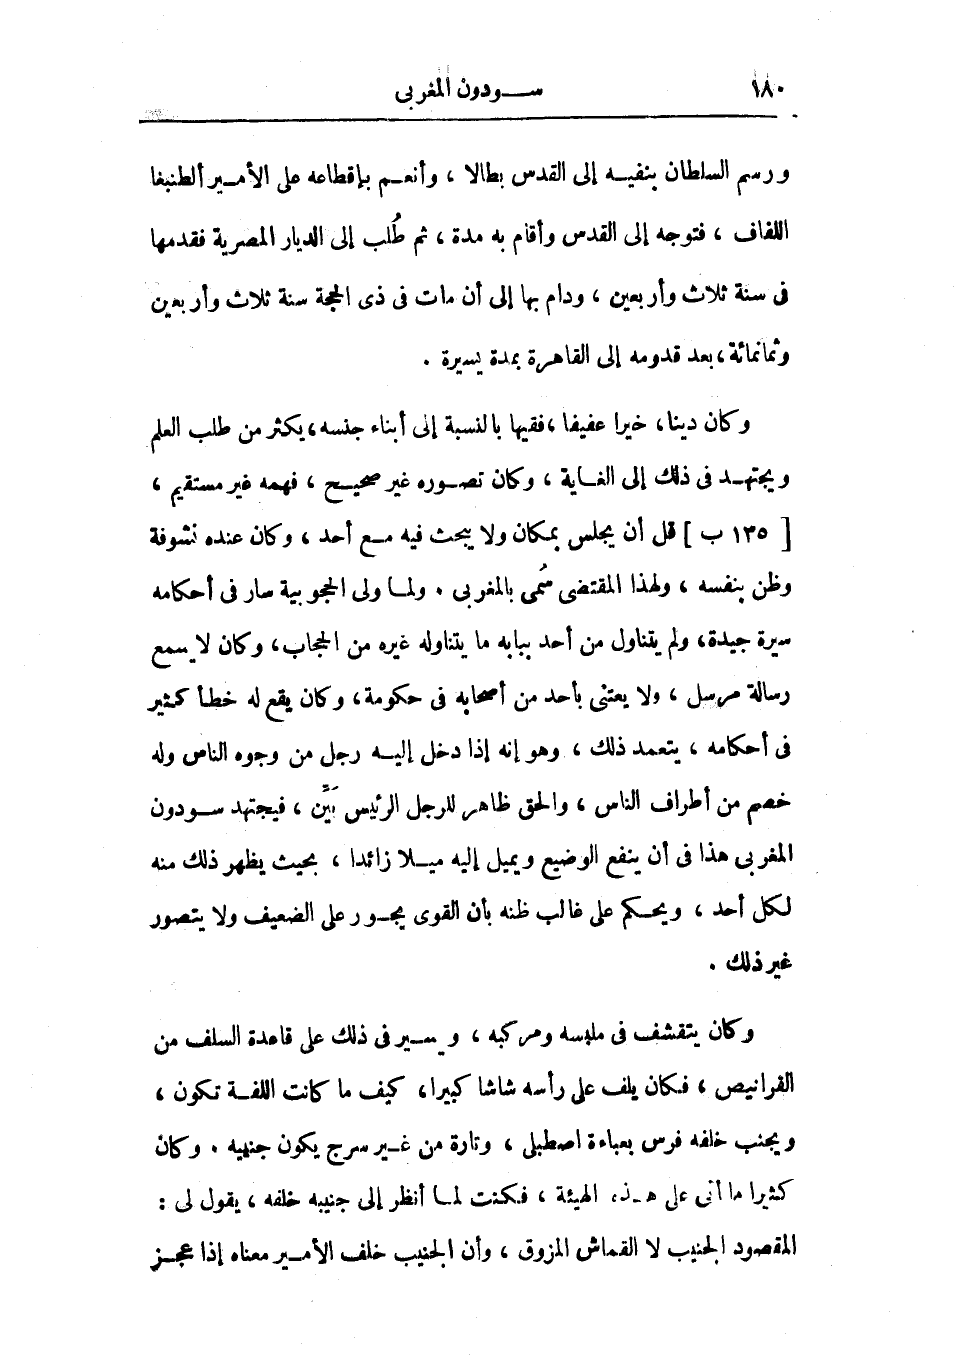 ١٨٠ ســـودون المغربى
ورسم السلطان بنفيــه إلى القدس بطالا ، وأنعــم بإقطاعه على الأمــير ألطنبغا
اللفاف ، فتوجه إلى القدس وأقام به مدة ، ثم طُلب إلى الديار المصرية فقدمها
فى سنة ثلاث وأربعين ، ودام بها إلى أن مات فى ذى الحجة سنة ثلاث وأربعين
وثمانمائة ، بعد قدومه إلى القاهرة بمدة يسيرة .
وكان دينا ، خيرا عفيفا ، فقيها بالنسبة إلى أبناء جنسه ، يكثر من طلب العلم
ويجتهــد فى ذلك إلى الغــاية ، وكان تصــوره غير صحيــح ، فهمه غير مستقيم ،
[ ١٣٥ ب ] قل أن يجلس بمكان ولا يبحث فيه مــع أحد ، وكان عنده نشوفة
وظن بنفسه ، ولهذا المقتضى سُمى بالمغربى . ولمــا ولى الحجوبية سار فى أحكامه
سيرة جيدة ، ولم يتناول من أحد ببابه ما يتناوله غيره من الحجاب ، وكان لا يسمع
رسالة مرسل ، ولا يعتنى بأحد من أصحابه فى حكومة ، وكان يقع له خطأ كثير
فى أحكامه ، يتعمد ذلك ، وهو إنه إذا دخل إليــه رجل من وجوه الناس وله
خصم من أطراف الناس ، والحق ظاهر للرجل الرئيس بَيِّن ، فيجتهد ســودون
المغربى هذا فى أن ينفع الوضيع ويميل إليه ميــلا زائدا ، بحيث يظهر ذلك منه
لكل أحد ، ويحــكم على غالب ظنه بأن القوى يجــور على الضعيف ولا يتصور
غير ذلك .
وكان يتقشف فى ملبسه ومركبه ، ويســير فى ذلك على قاعدة السلف من
القرانيص ، فكان يلف على رأسه شاشا كبيرا ، كيف ما كانت اللفــة تكون ،
ويجنب خلفه فرس بعباءة اصطبلى ، وتارة من غــير سرج يكون جنهيه . وكان
كثيرا ما أتى على هــذه الهيئة ، فكنت لمــا أنظر إلى جنيبه خلفه ، يقول لى :
المقصود الجنيب لا القماش المزوق ، وأن الجنيب خلف الأمــير معناه إذا عجــز